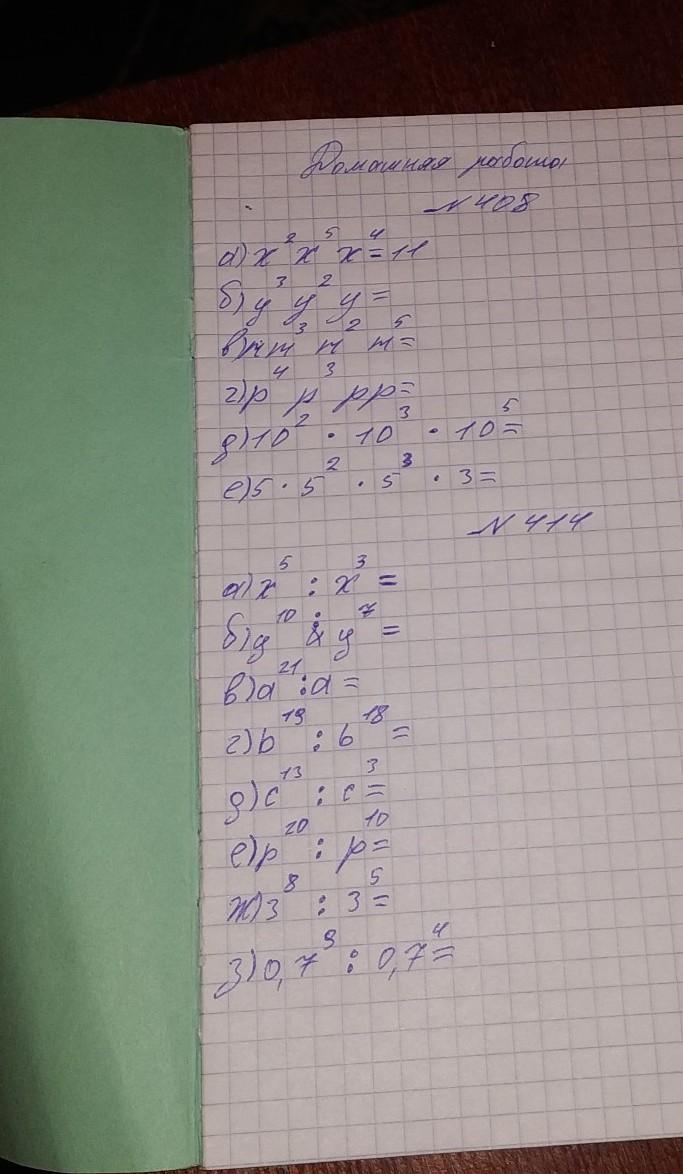 Домашняя работа
№ 408
а) x² x⁵ x⁴ = 11
б) y³ y² y =
в) m m³ m² m⁵ =
г) p⁴ p³ p p =
д) 10² · 10³ · 10⁵ =
е) 5 · 5² · 5³ · 3 =
№ 414
а) x⁵ : x³ =
б) y¹⁰ : y⁷ =
в) a²¹ : a =
г) b¹⁹ : b¹⁸ =
д) c¹³ : c³ =
е) p²⁰ : p¹⁰ =
ж) 3⁸ : 3⁵ =
з) 0,7⁹ : 0,7⁴ =